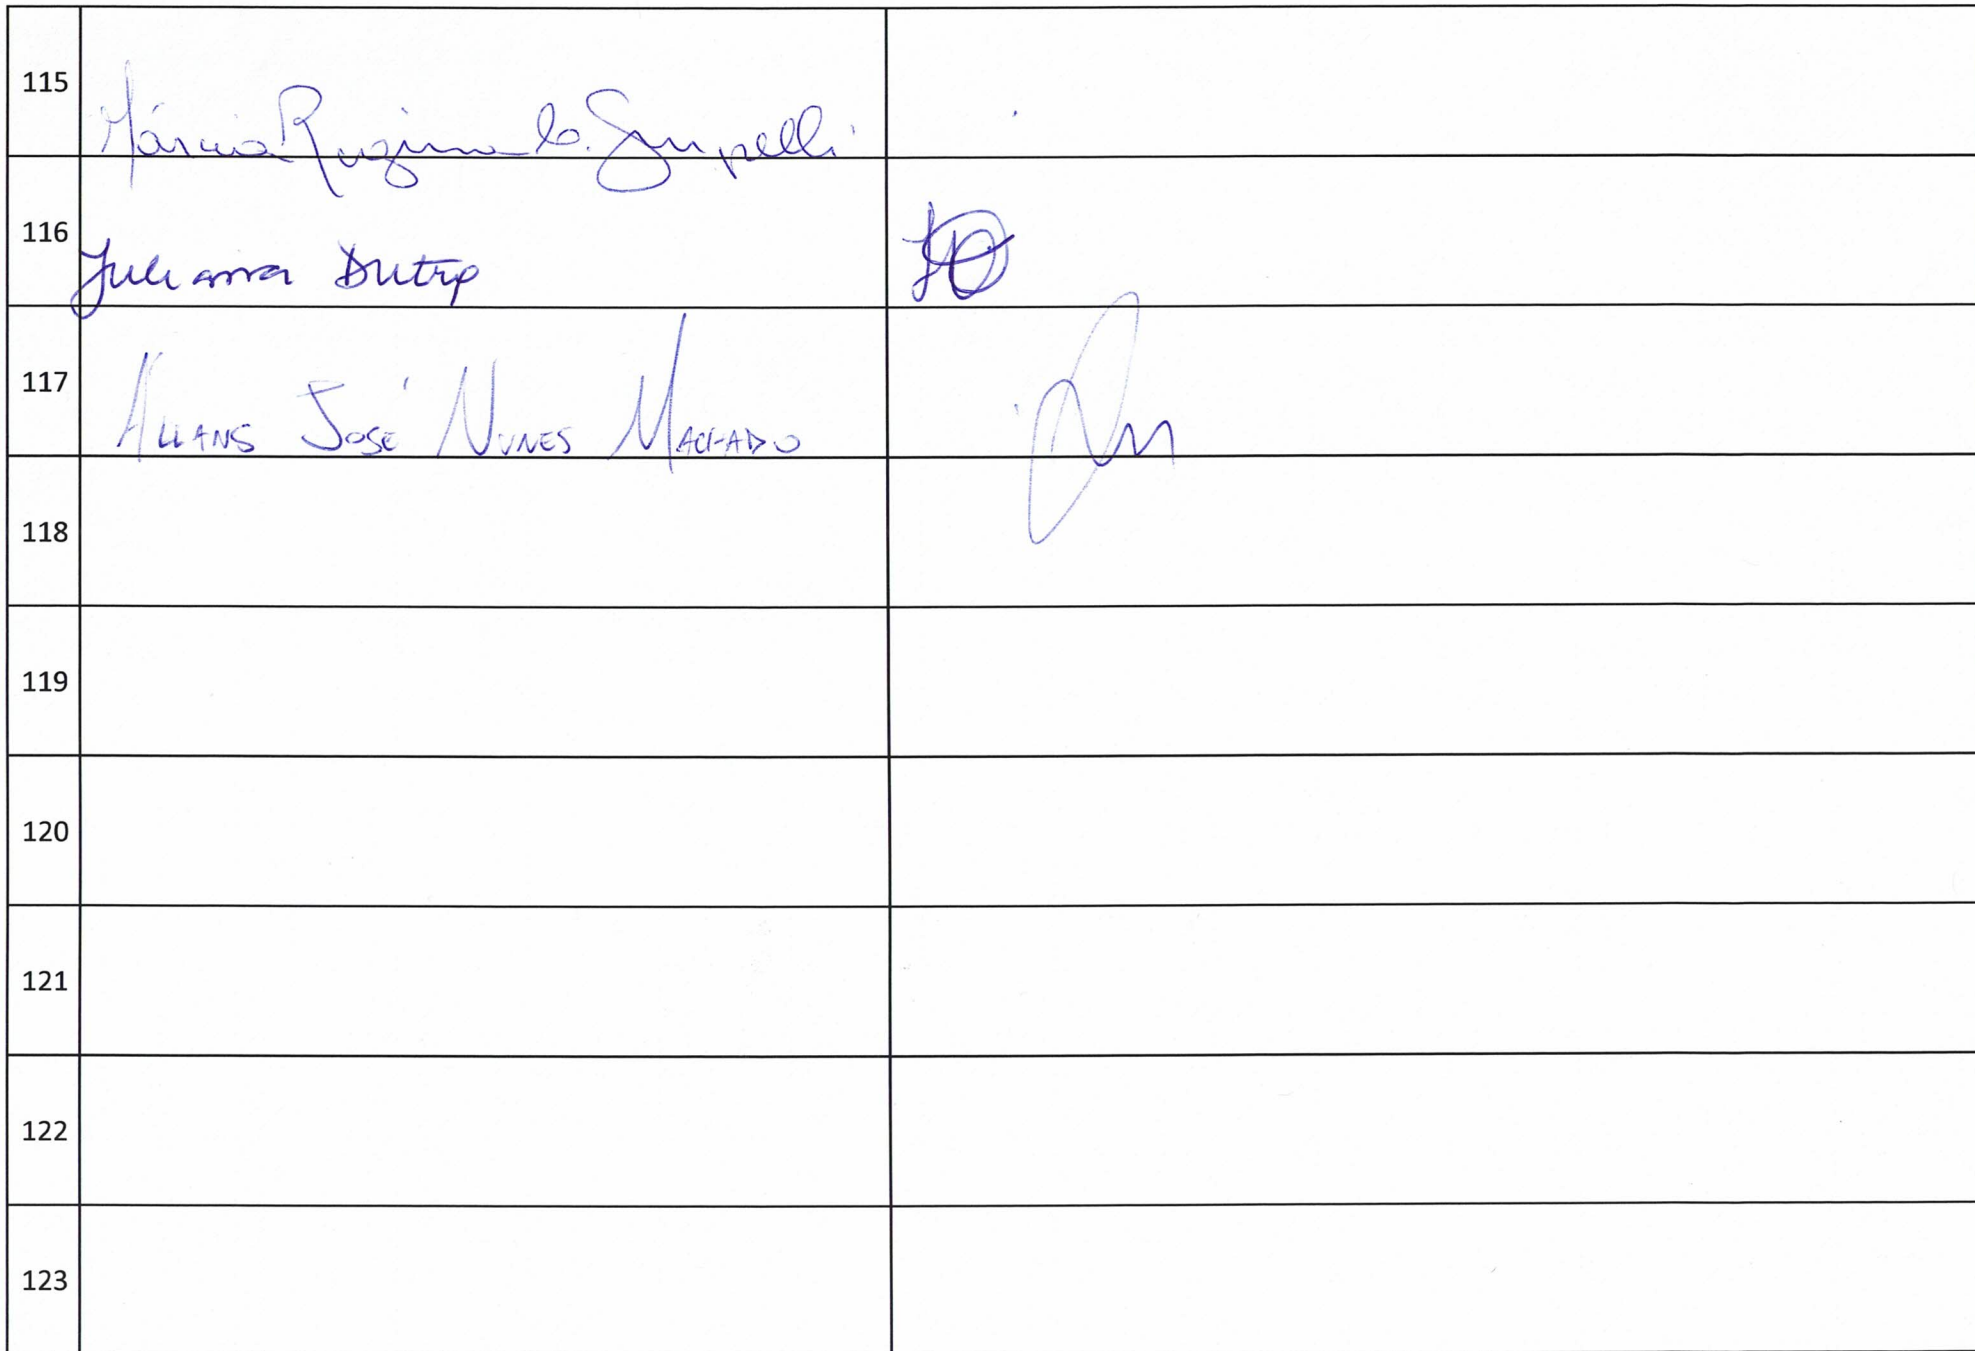 115 Márcia Regina
116 Juliana Dutra
117 ALLANS JOSÉ NUNES MACHADO
118
119
120
121
122
123